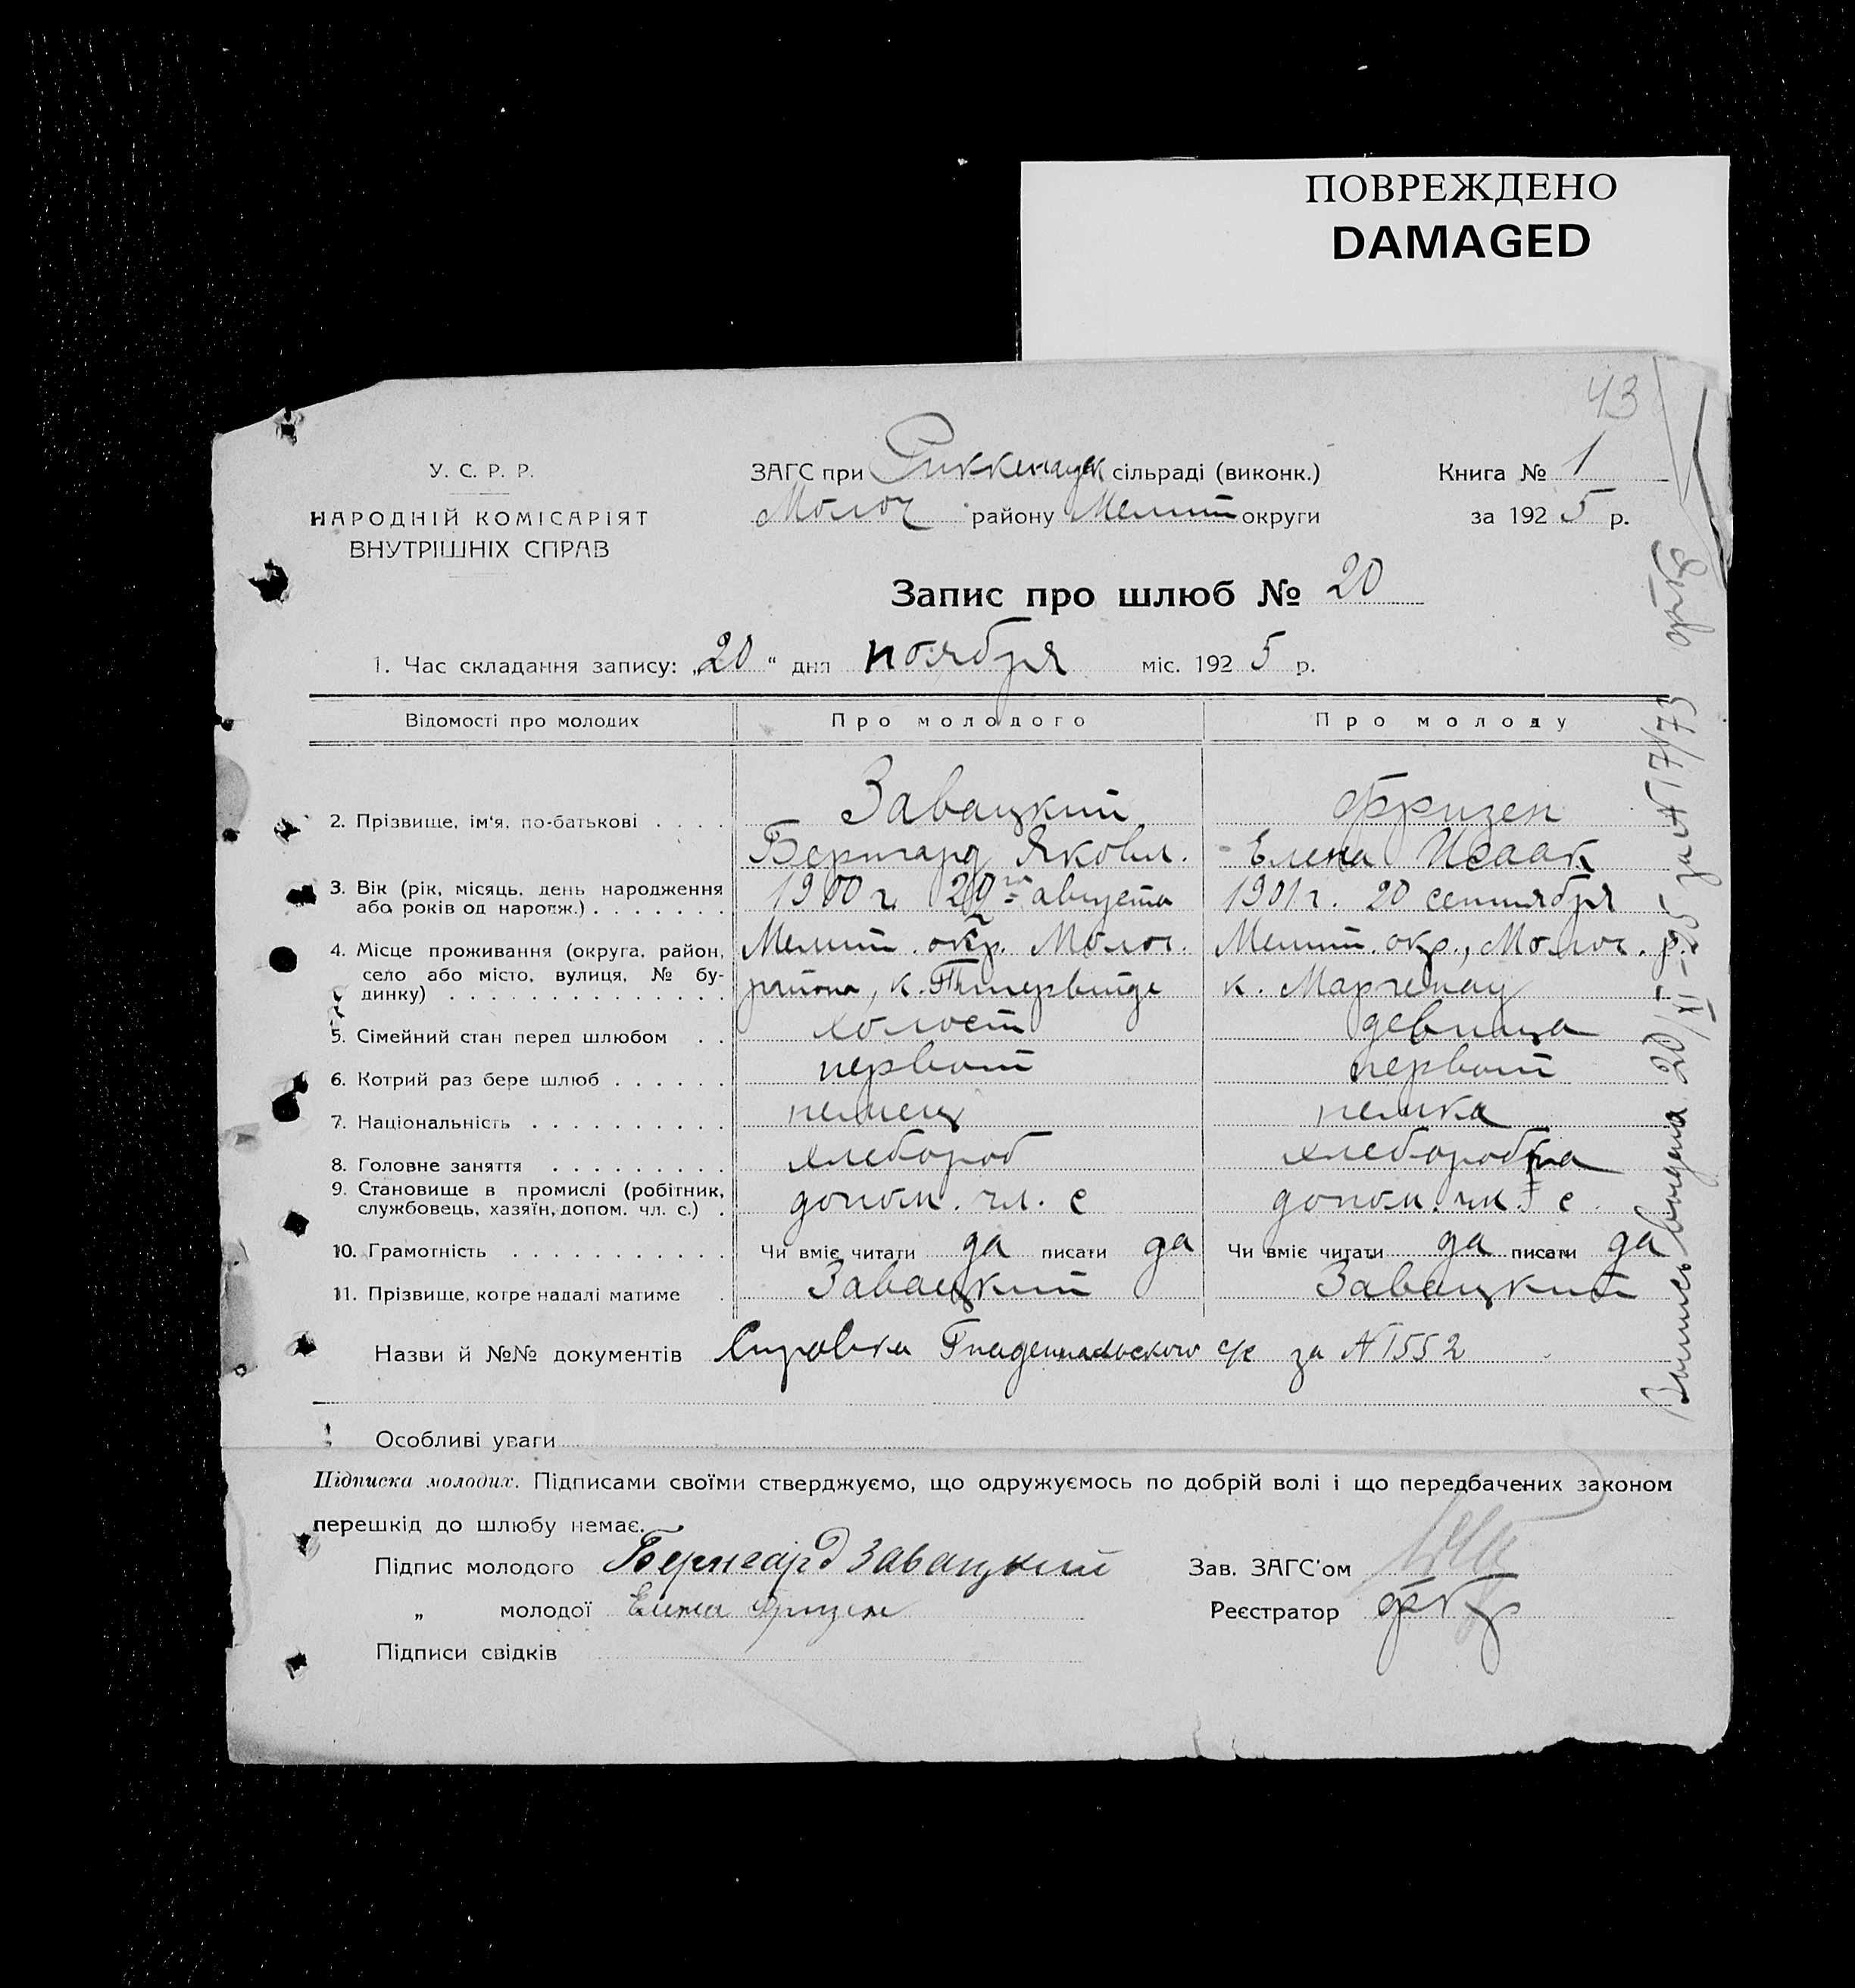 ПОВРЕЖДЕНО
DAMAGED
43
У. С. Р. Р.
НАРОДНІЙ КОМІСАРІЯТ
ВНУТРІШНІХ СПРАВ
ЗАГС при Риккенауск сільраді (виконк.)
Молоч району Мелит округи
Книга № 1
за 1925 р.
Запис про шлюб № 20
1. Час складання запису: „20“ дня ноября міс. 1925 р.
Відомості про молодих Про молодого Про молоду
2. Прізвище, ім'я, по-батькові . . . . Завацкий Фризен
Бернгард Яковл. Елена Исаак
3. Вік (рік, місяць, день народження 1900 г. 29го августа 1901 г. 20 сентября
або років од народж.) . . . . . . .
4. Місце проживання (округа, район, Мелит. окр. Молоч. Мелит. окр., Молоч. р.
село або місто, вулиця, № бу-
динку) . . . . . . . . . . . . . . района, к. к. Маргенау
5. Сімейний стан перед шлюбом . . холост девица
6. Котрий раз бере шлюб . . . . . . первый первый
7. Національність . . . . . . . . . . немец немка
8. Головне заняття . . . . . . . . . хлебороб хлеборобка
9. Становище в промислі (робітник, допом. чл. с допом. чл. с.
службовець, хазяїн, допом. чл. с.) .
10. Грамотність . . . . . . . . . . . Чи вміє читати да писати да Чи вміє читати да писати да
11. Прізвище, котре надалі матиме . Завацкий Завацкий
Назви й №№ документів Справка Гнадентальского с/с за № 1552
Особливі уваги
Підписка молодих. Підписами своїми стверджуємо, що одружуємось по добрій волі і що передбачених законом
перешкід до шлюбу немає.
Підпис молодого Бернгард Завацкий
„ молодої Елена Фризен
Підписи свідків
Зав. ЗАГС'ом
Реєстратор
Выпись выдана 20/XI-25 за № 17/73